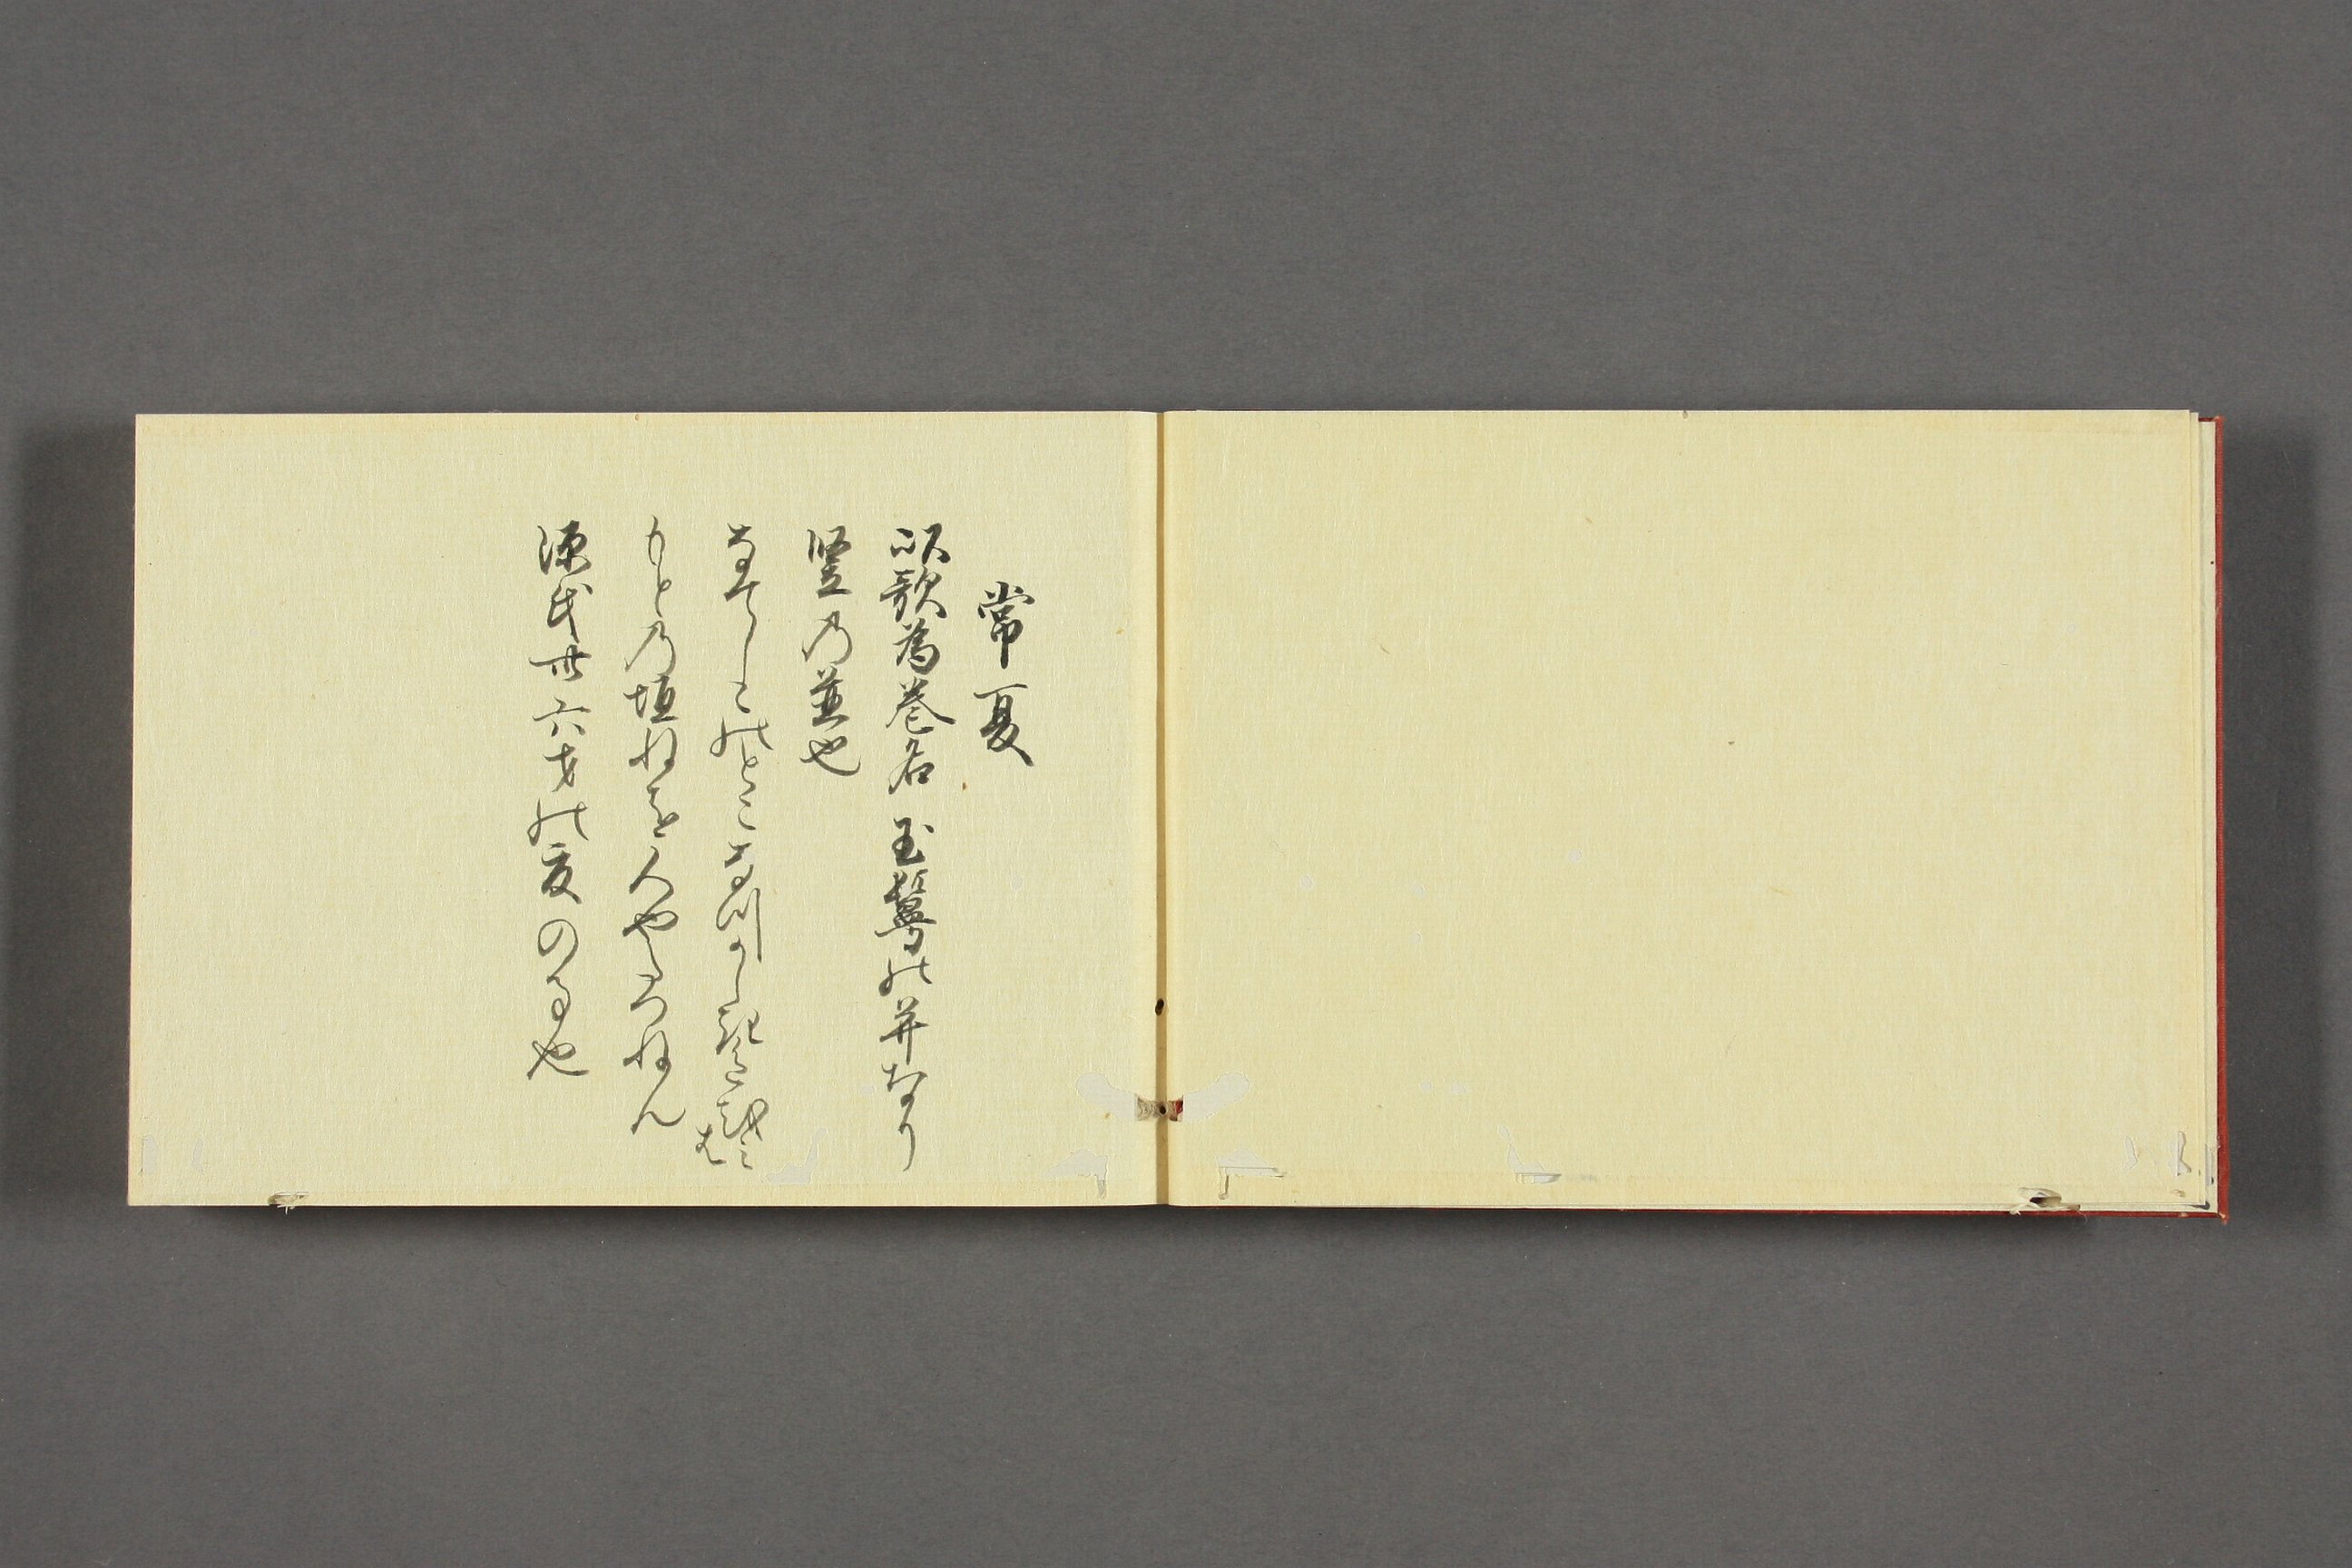 常夏
以歌為巻名 玉鬘の并なり
竪乃並也
なてしこのとこなつかしき色をみは
もとの垣ねを人やたつねん
源氏卅六才の夏の事也